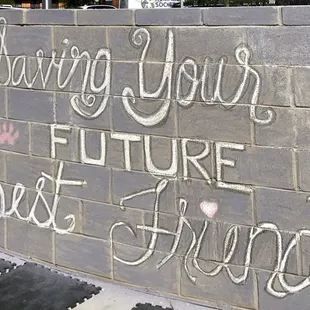 Saving Your
FUTURE
Best Friend